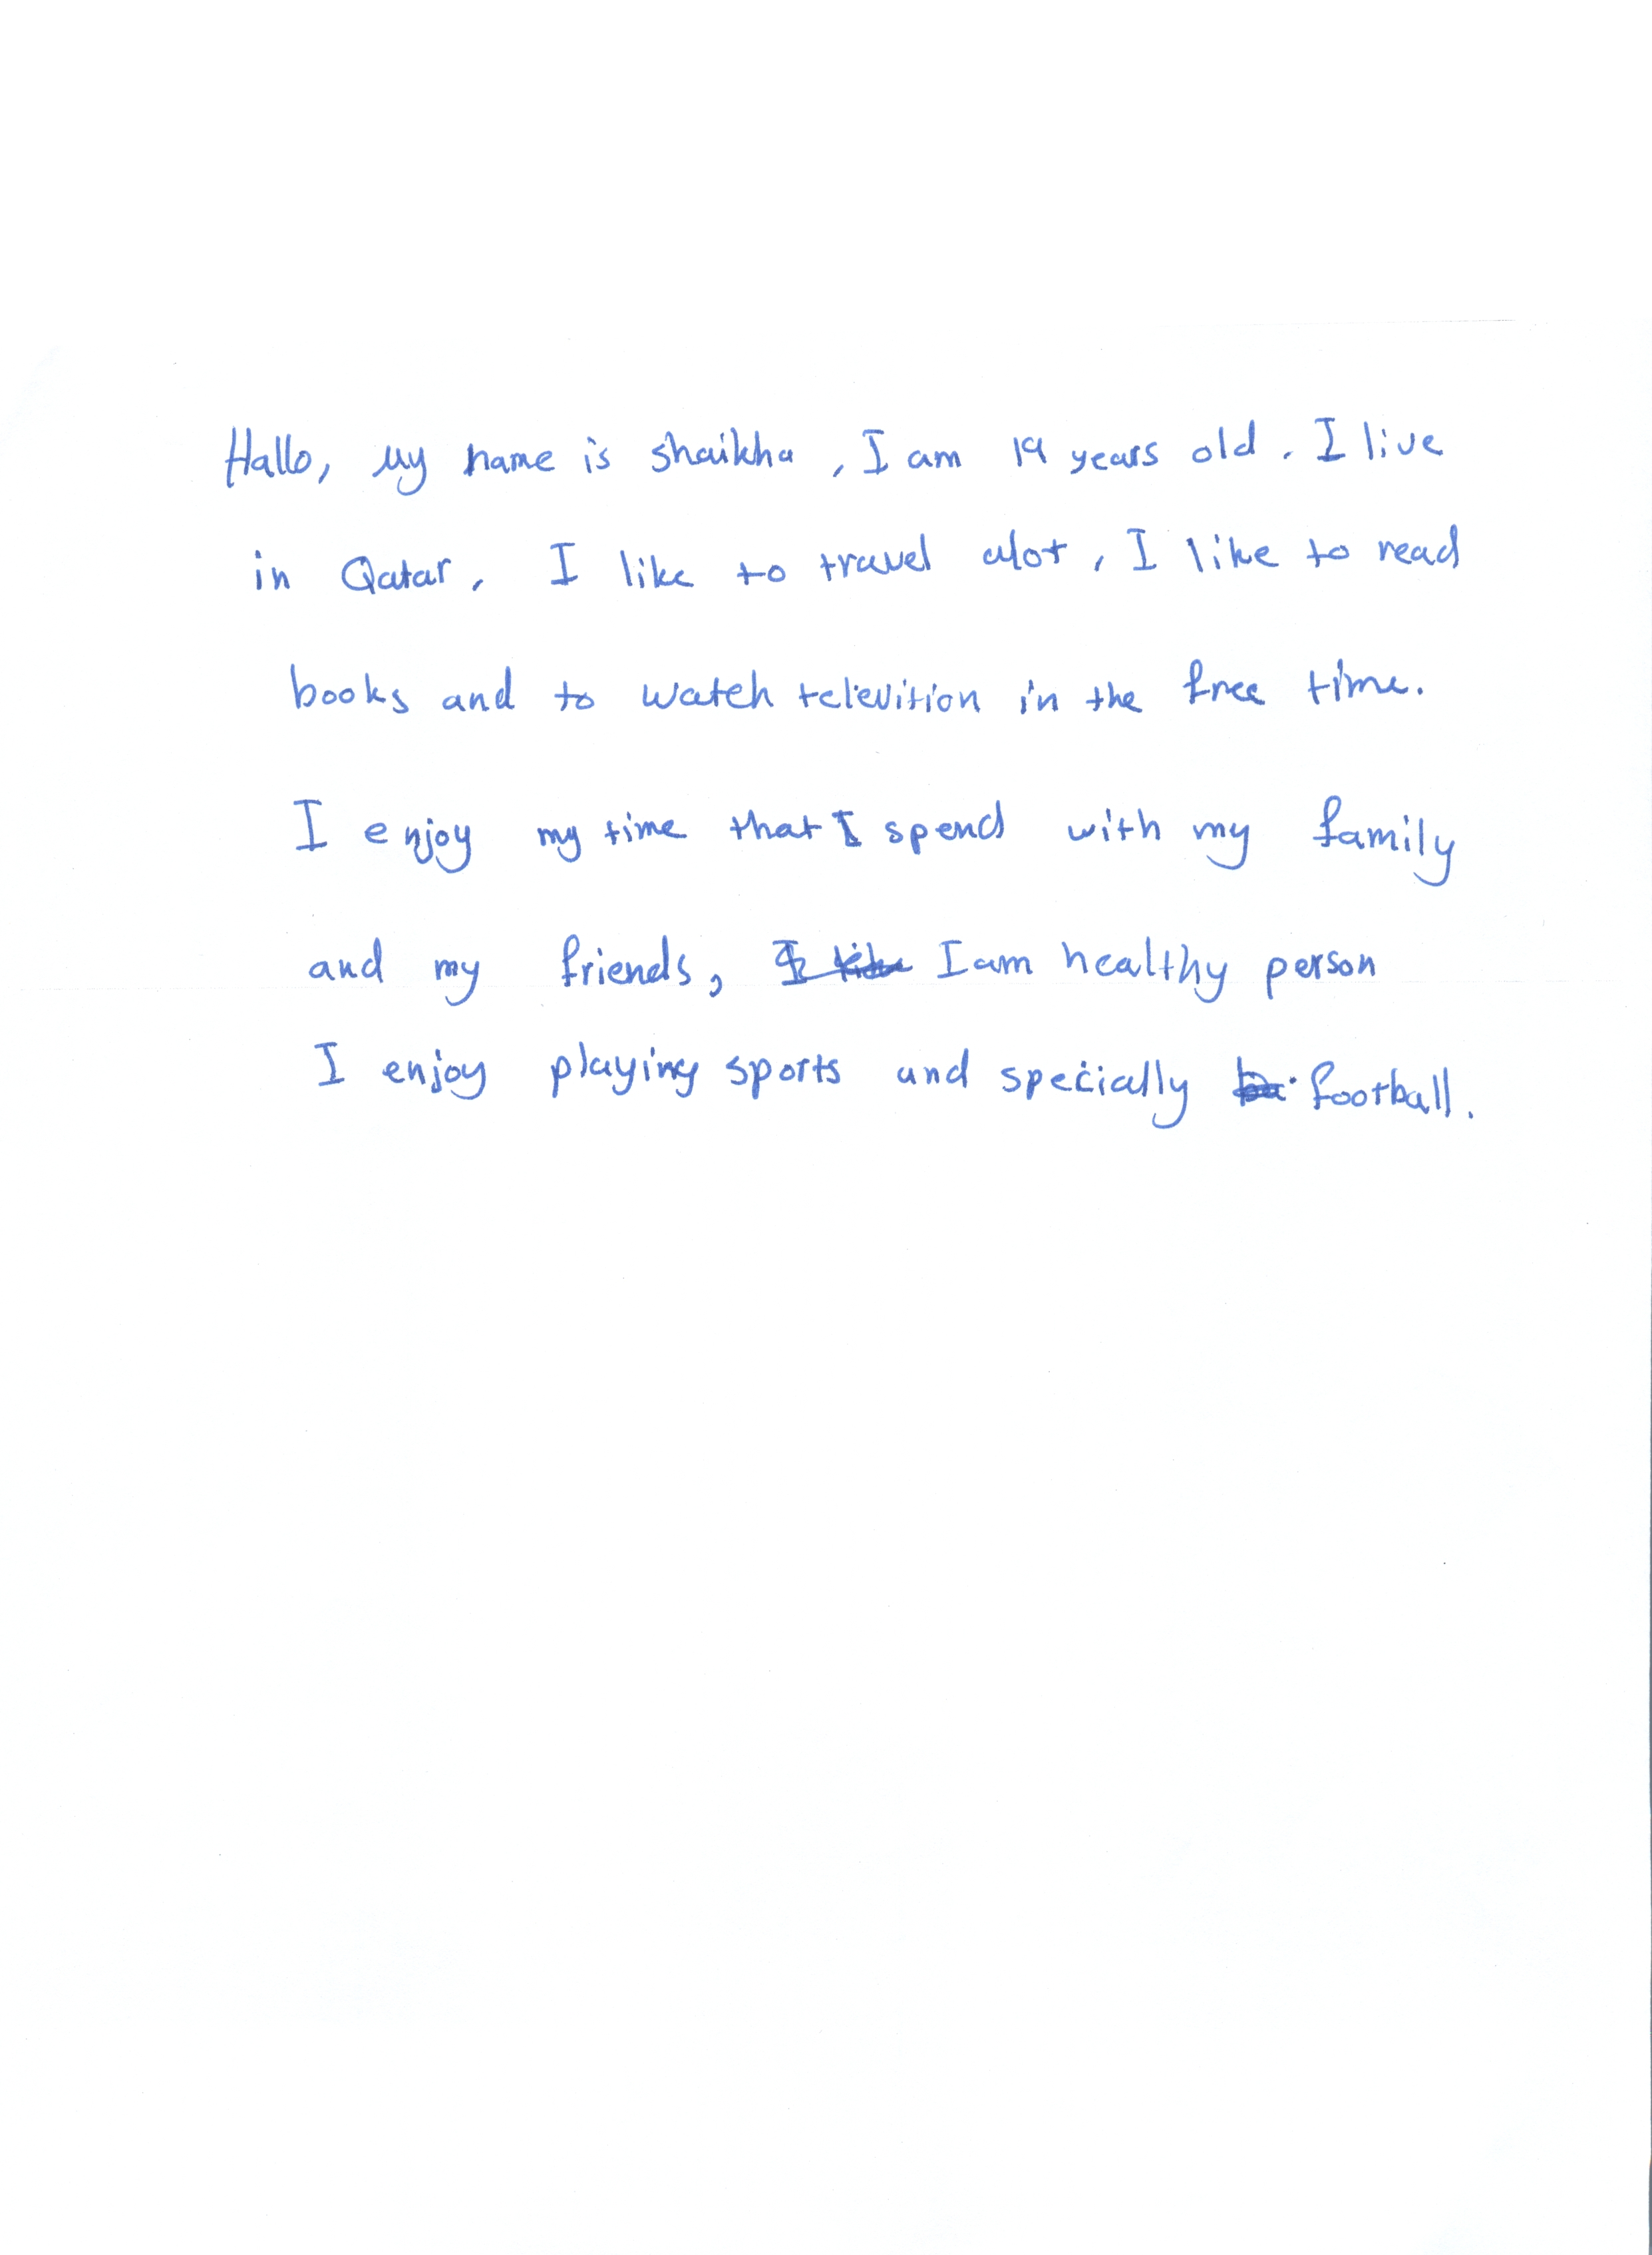 Hallo, My name is shaikha , I am 19 years old . I live
in Qatar, I like to travel alot , I like to read
books and to watch televition in the free time.
I enjoy my time that I spend with my family
and my friends, I am healthy person
I enjoy playing sports and specially football.